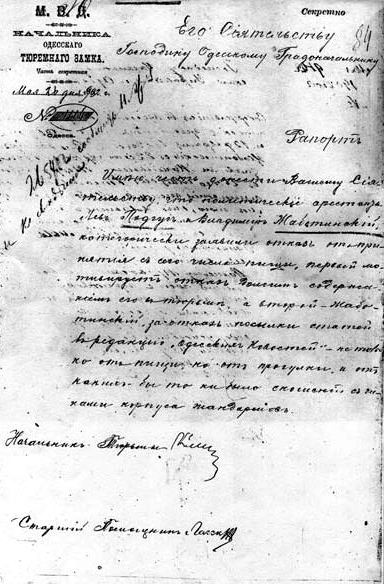 М. В. Д.
НАЧАЛЬНИКА
ОДЕССКАГО
ТЮРЕМНАГО ЗАМКА.
Часть секретная
Мая 2 дня 1902 г.
№
Одесса.
Секретно
84
Его Сіятельству
Господину Одесскому Градоначальнику
Рапортъ
Имѣю честь донести Вашему Сія-
тельству, что политическіе арестан.
Левъ Владиміръ Жаботинскій,
категорически заявили отказъ отъ при-
нятія съ сего числа пищи, первый мо-
тивируетъ отказъ долгимъ содержа-
ніемъ его въ тюрьмѣ, а второй - Жабо-
тинскій, за отказъ посылки статей
въ редакцію „Одесскихъ Новостей" - не толь-
ко отъ пищи, но отъ прогулки и отъ
какихъ бы то ни было сношеній съ чи-
нами корпуса жандармовъ.
Начальникъ Тюрьмы
Старшій Помощникъ